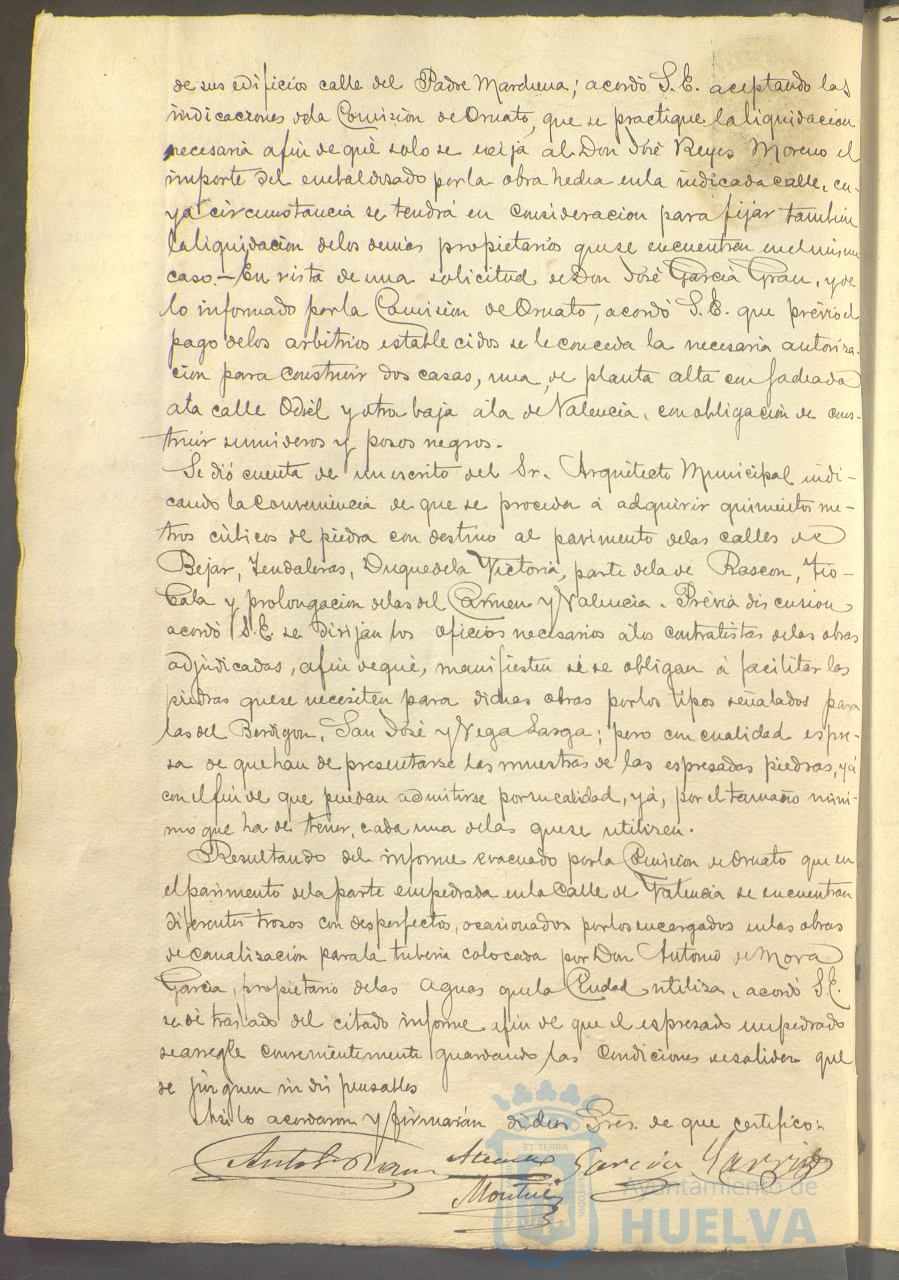 de sus edificios calle del Padre Marchena; acordó S.E. aceptando las
indicaciones de la Comision de Ornato, que se practique la liquidacion
necesaria afin de que solo se exija al Don José Reyes Moreno el
importe del embaldosado por la obra hecha en la indicada calle, cu-
ya circunstancia se tendrá en consideracion para fijar tambien
la liquidacion de los demas propietarios que se encuentren en el mismo
caso.— En vista de una solicitud de Don José Garcia Grau, y de
lo informado por la Comision de Ornato, acordó S.E. que prévio el
pago de los arbitrios establecidos se le conceda la necesaria autoriza-
cion para construir dos casas, una, de planta alta con fachada
á la calle Odiel y otra baja á la de Valencia, con obligacion de cons-
truir sumideros y posos negros.
Se dió cuenta de un escrito del Sr. Arquitecto Municipal indi-
cando la conveniencia de que se proceda á adquirir quinientos me-
tros cúbicos de piedra con destino al pavimento de las calles de
Bejar, Tendaleras, Duque de la Victoria, parte de la de Rascon, Tio-
Cala y prolongacion de las del Carmen y Valencia. Prévia discusion
acordó S.E. se dirijan los oficios necesarios á los contratistas de las obras
adjudicadas, afin de que, manifiesten si se obligan á facilitar las
piedras que se necesiten para dichas obras por los tipos señalados para
las del Berdigon, San José y Vega Larga; pero con cualidad espre-
sa de que han de presentarse las muestras de las espresadas piedras, yá
con el fin de que puedan admitirse por su calidad, yá, por el tamaño mini-
mo que ha de tener, cada una de las que se utilizen.
Resultando del informe evacuado por la Comision de Ornato que en
el pavimento de la parte empedrada en la calle de Valencia se encuentran
diferentes trosos con desperfectos, ocasionados por los encargados en las obras
de canalizacion para la tuberia colocada por Don Antonio de Mora
Garcia, propietario de las aguas que la Ciudad utiliza, acordó S.E.
se dé traslado del citado informe afin de que el espresado empedrado
se arregle convenientemente guardando las condiciones de solidez que
se juzguen indispensables
Asi lo acordaron y firmarán dichos Sres. de que certifico.
Garcia Garrido
Montiel
ET TERRA
Ayuntamiento de
HUELVA